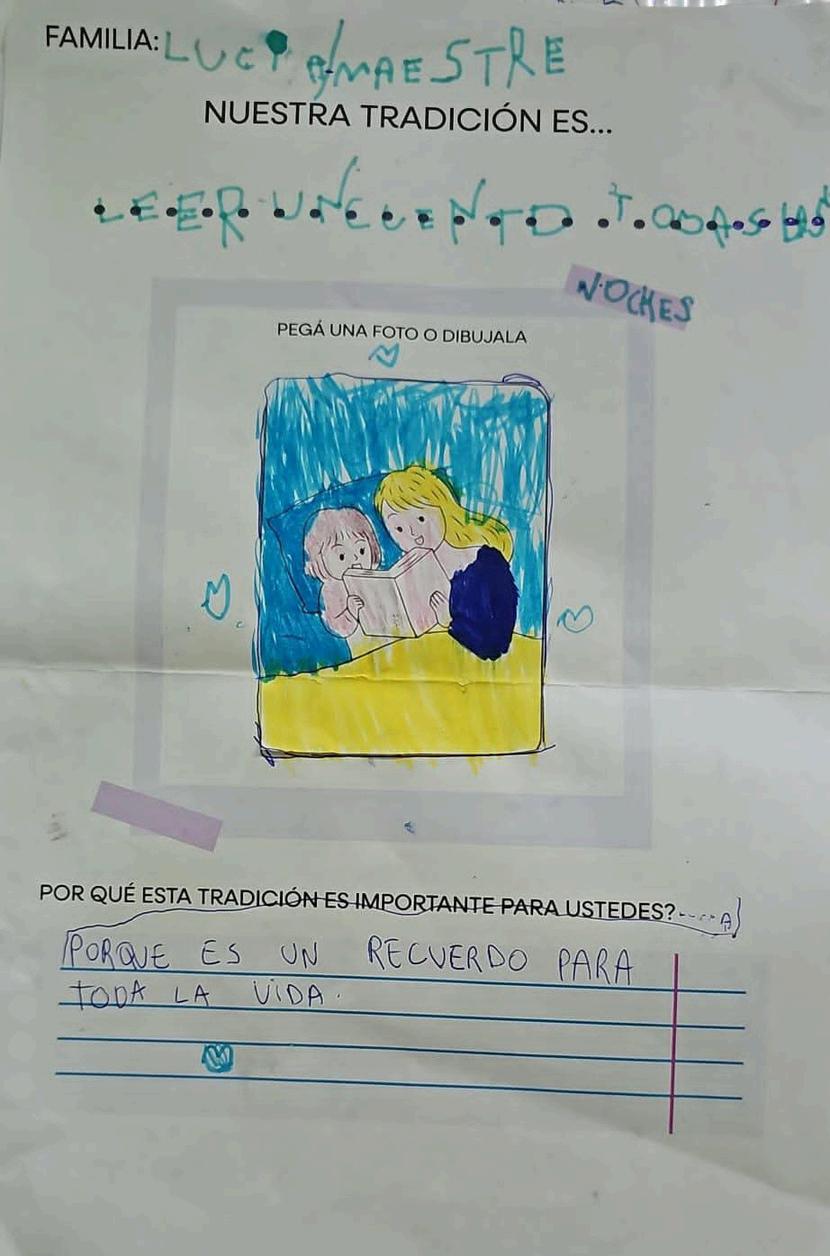 FAMILIA: LUCIA MAESTRE
NUESTRA TRADICIÓN ES...
LEER UN CUENTO TODAS LAS
NOCHES
PEGÁ UNA FOTO O DIBUJALA
POR QUÉ ESTA TRADICIÓN ES IMPORTANTE PARA USTEDES?
PORQUE ES UN RECUERDO PARA
TODA LA VIDA.